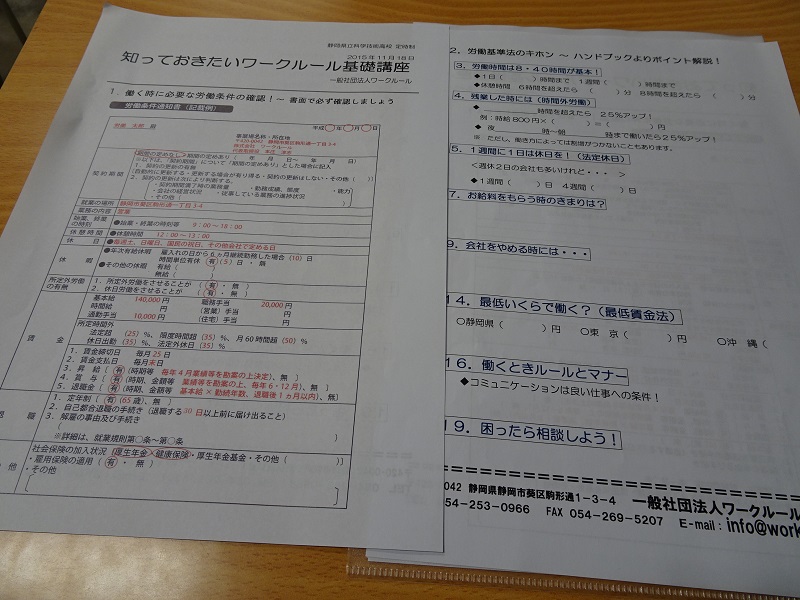 静岡県立科学技術高校 定時制
2015年11月18日
知っておきたいワークルール基礎講座
一般社団法人ワークルール
1.働く時に必要な労働条件の確認!～書面で必ず確認しましょう
労働条件通知書(記載例)
労働 太郎 殿
平成 年 月 日
事業場名称・所在地
契約期間
期間の定めなし 期間の定めあり( 年 月 日～ 年 月 日)
※以下は、「契約期間」について「期間の定めあり」とした場合に記入
1.契約の更新の有無
[自動的に更新する・更新する場合が有り得る・契約の更新はしない・その他( )]
2.契約の更新は次により判断する。
・契約期間満了時の業務量 ・勤務成績、態度 ・能力
・会社の経営状況 ・従事している業務の進捗状況
・その他( )
就業の場所 静岡市葵区駒形通一丁目3-4
業務の内容 営業
始業、終業の時刻 ●始業・終業の時刻等 9:00～18:00
休憩時間 ●休憩時間 12:00～13:00
休日 ●毎週土、日曜日、国民の祝日、その他会社で定める日
休暇 ●年次有給休暇 雇入れの日から6ヵ月継続勤務した場合(10)日
時間単位有休 有(5)日・無
●その他の休暇 有給( )
無給( )
所定外労働の有無 1.所定外労働をさせることが(有・無)
2.休日労働をさせることが(有・無)
賃金
基本給 140,000円 職務手当 20,000円
時間給 円 (営業)手当 円
通勤手当 10,000円 (住宅)手当 円
所定時間外
法定超 (25)%、限度時間超(35)%、月60時間超(50)%
休日出勤(35)%、法定外休日(35)%
1.賃金締切日 毎月25日
2.賃金支払日 毎月末日
3.昇給(有(時期、毎年4月業績等を勘案の上決定)、無)
4.賞与(有(時期、金額等 業績等を勘案の上、毎年6・12月)、無)
5.退職金(有(時期、金額等 基本給×勤続年数、退職後1ヵ月以内)、無)
退職
1.定年制(有(65歳)、無)
2.自己都合退職の手続き(退職する30日以上前に届け出ること)
3.解雇の事由及び手続き
( )
※詳細は、就業規則第○条～第○条
他
社会保険の加入状況(厚生年金・健康保険・厚生年金基金・その他( ))
・雇用保険の適用(有・無)
・その他
2.労働基準法のキホン ～ ハンドブックよりポイント解説!
3.労働時間は8・40時間が基本!
◆1日( )時間まで 1週間( )時間まで
◆休憩時間 6時間を超えたら( )分 8時間を超えたら( )分
4.残業した時には(時間外労働)
◆ たら25%アップ!
例:時給800円×( )=( )円
◆夜 時～朝 時まで働いたら25%アップ!
※ただし、働き方によっては割増がつかないこともあります。
5.1週間に1日は休日を!(法定休日)
<週休2日の会社も多いけれど・・・>
◆1週間( )日 4週間( )日
7.お給料をもらう時のきまりは?
9.会社をやめる時には・・・
14.最低いくらで働く?(最低賃金法)
○静岡県( )円 ○東 京( )円 ○沖 縄(
16.働くときルールとマナー
◆コミュニケーションは良い仕事への条件!
19.困ったら相談しよう!
042 静岡県静岡市葵区駒形通1-3-4 一般社団法人ワークルール
054-253-0966 FAX 054-269-5207 E-mail:info@work